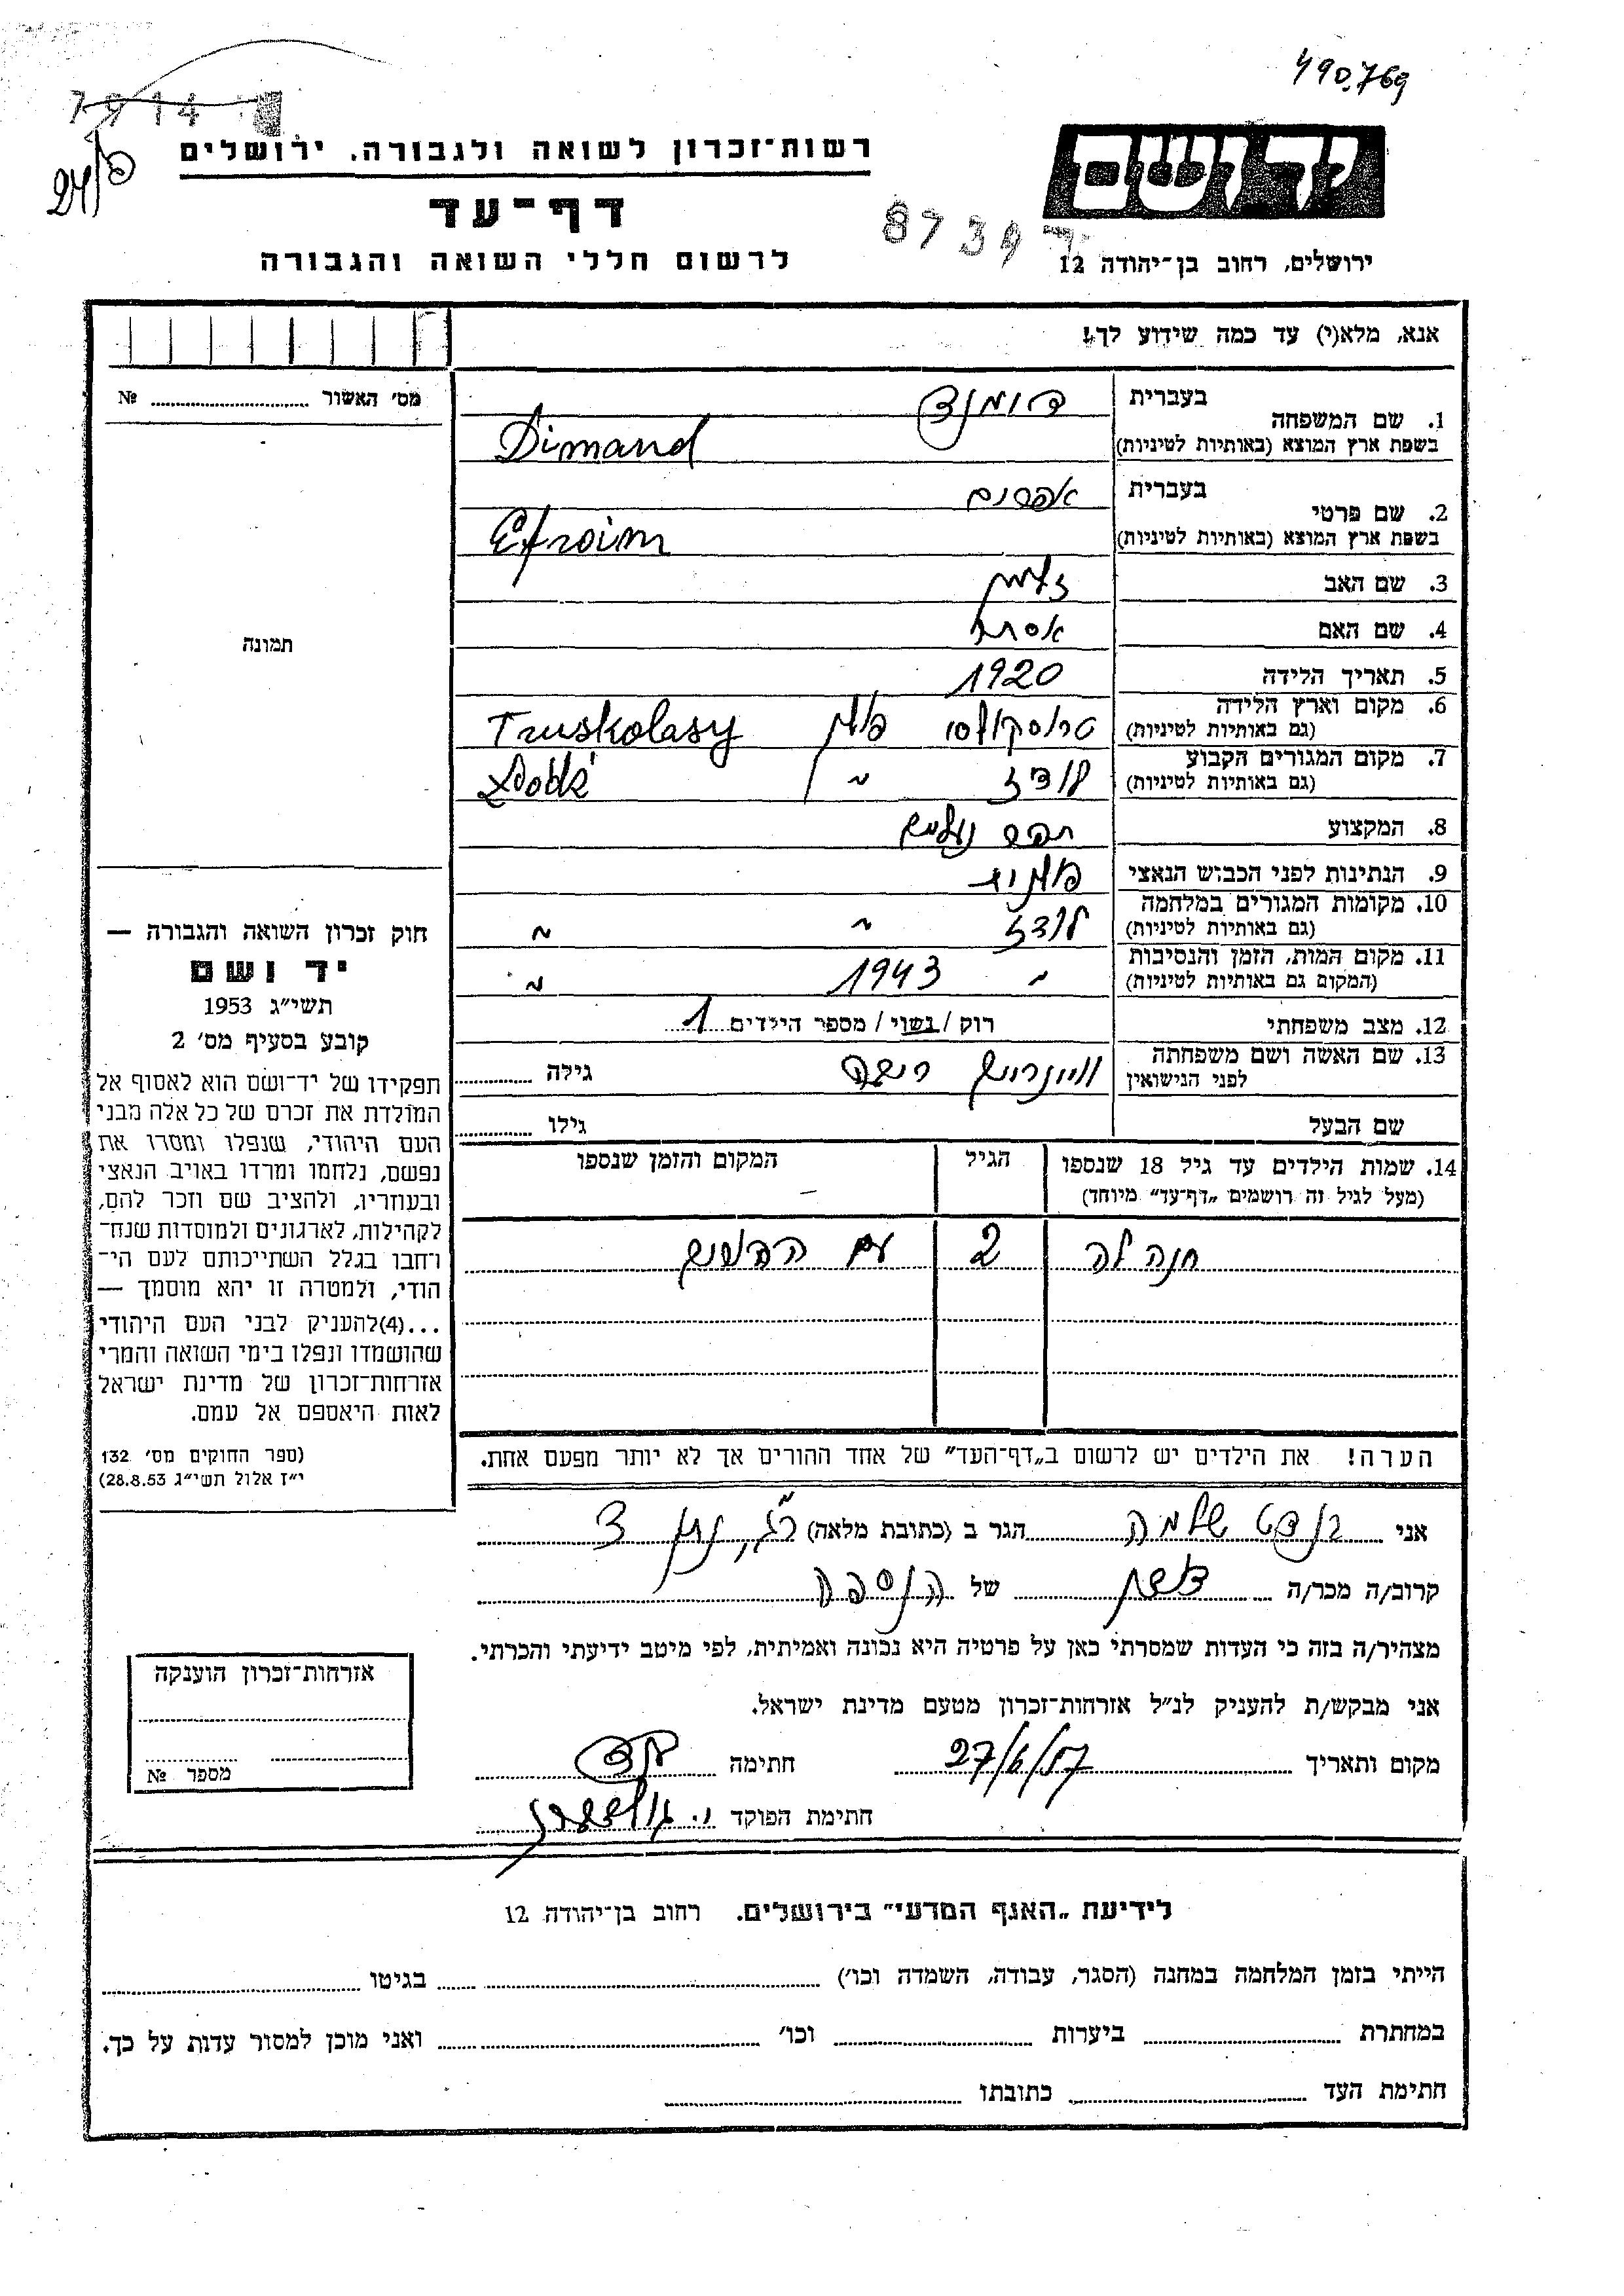 490.769
7914
רשות־זכרון לשואה ולגבורה, ירושלים
יד ושם
דף־עד
24/פ
לרשום חללי השואה והגבורה
ירושלים, רחוב בן־יהודה 12
אנא, מלא(י) עד כמה שידוע לך!
מס׳ האשור № 
תמונה
1. שם המשפחה
בעברית דימנד
בשפת ארץ המוצא (באותיות לטיניות) Dimand
2. שם פרטי
בעברית אפרים
בשפת ארץ המוצא (באותיות לטיניות) Efroim
3. שם האב זלמן
4. שם האם אסתר
5. תאריך הלידה 1920
6. מקום וארץ הלידה (גם באותיות לטיניות) טרוסקולסי פולין Truskolasy
7. מקום המגורים הקבוע (גם באותיות לטיניות) לודז " Łódź
8. המקצוע תפר נעלים
9. הנתינות לפני הכבוש הנאצי פולנית
10. מקומות המגורים במלחמה (גם באותיות לטיניות) לודז " "
11. מקום המות, הזמן והנסיבות (המקום גם באותיות לטיניות) " 1943 "
12. מצב משפחתי רוק / נשוי / מספר הילדים 1
13. שם האשה ושם משפחתה לפני הנישואין גילה
שם הבעל גילו
14. שמות הילדים עד גיל 18 שנספו
(מעל לגיל זה רושמים „דף־עד” מיוחד)
הגיל
המקום והזמן שנספו
חנה לה 2 עם ההורים
הערה! את הילדים יש לרשום ב„דף־העד” של אחד ההורים אך לא יותר מפעם אחת.
חוק זכרון השואה והגבורה —
יד ושם
תשי״ג 1953
קובע בסעיף מס׳ 2
תפקידו של יד־ושם הוא לאסוף אל
המולדת את זכרם של כל אלה מבני
העם היהודי, שנפלו ומסרו את
נפשם, נלחמו ומרדו באויב הנאצי
ובעוזריו, ולהציב שם וזכר להם,
לקהילות, לארגונים ולמוסדות שנח־
רחבו בגלל השתייכותם לעם הי־
הודי, ולמטרה זו יהא מוסמך —
...(4)להעניק לבני העם היהודי
שהושמדו ונפלו בימי השואה והמרי
אזרחות־זכרון של מדינת ישראל
לאות היאספם אל עמם.
(ספר החוקים מס׳ 132
י״ז אלול תשי״ג 28.8.53)
אני שלמה הגר ב (כתובת מלאה)
קרוב/ה מכר/ה של
מצהיר/ה בזה כי העדות שמסרתי כאן על פרטיה היא נכונה ואמיתית, לפי מיטב ידיעתי והכרתי.
אני מבקש/ת להעניק לנ״ל אזרחות־זכרון מטעם מדינת ישראל.
מקום ותאריך 27/6/57 חתימה
חתימת הפוקד
אזרחות־זכרון הוענקה
מספר №
לידיעת „האגף המדעי” בירושלים. רחוב בן־יהודה 12
הייתי בזמן המלחמה במחנה (הסגר, עבודה, השמדה וכו׳) בגיטו
במחתרת ביערות וכו׳ ואני מוכן למסור עדות על כך.
חתימת העד כתובתו